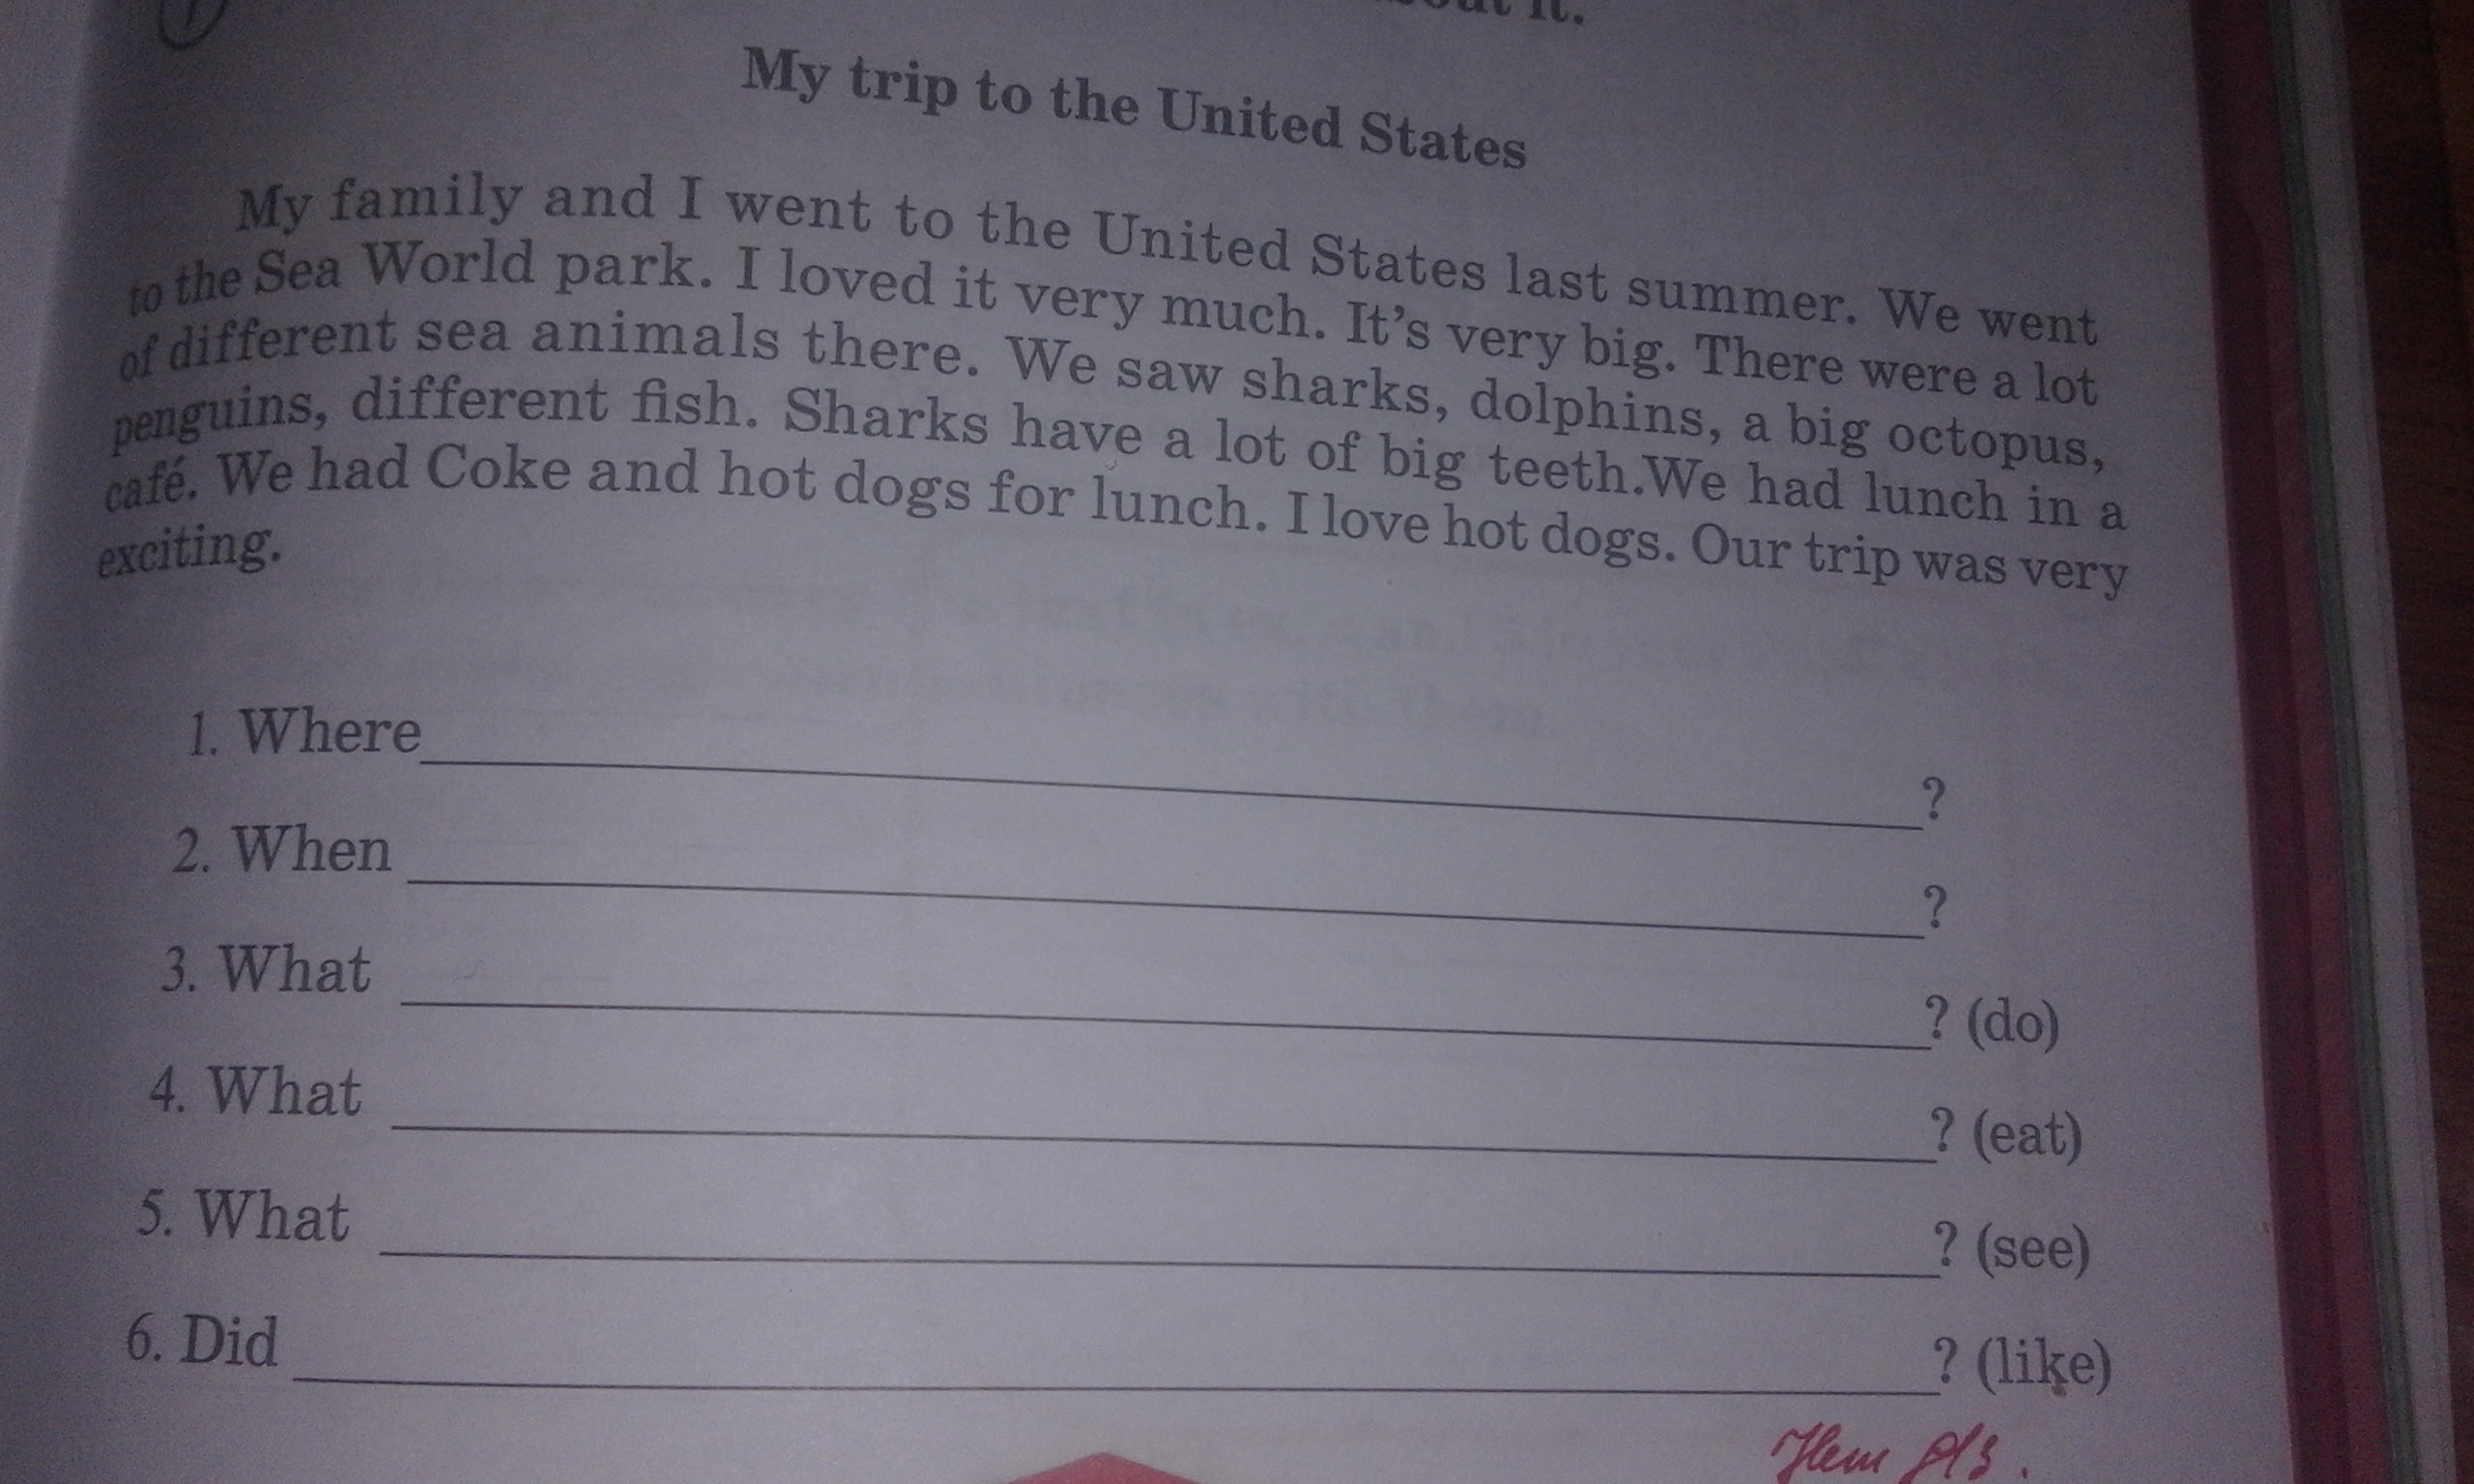 it.
My trip to the United States
My family and I went to the United States last summer. We went
to the Sea World park. I loved it very much. It's very big. There were a lot
of different sea animals there. We saw sharks, dolphins, a big octopus,
penguins, different fish. Sharks have a lot of big teeth.We had lunch in a
café. We had Coke and hot dogs for lunch. I love hot dogs. Our trip was very
exciting.
1. Where ?
2. When ?
3. What ? (do)
4. What ? (eat)
5. What ? (see)
6. Did ? (like)
Нет